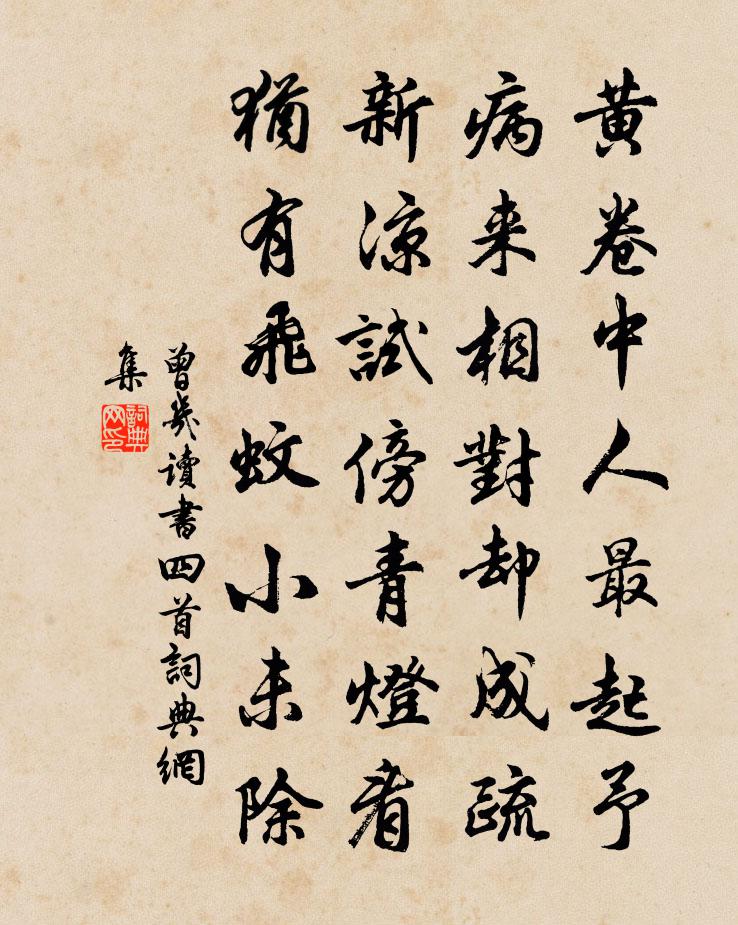 黄卷中人最起予
病来相對却成疏
新涼試傍青燈看
猶有飛蚊小未除
曾幾讀書四首詞典網
集
詞典
网印